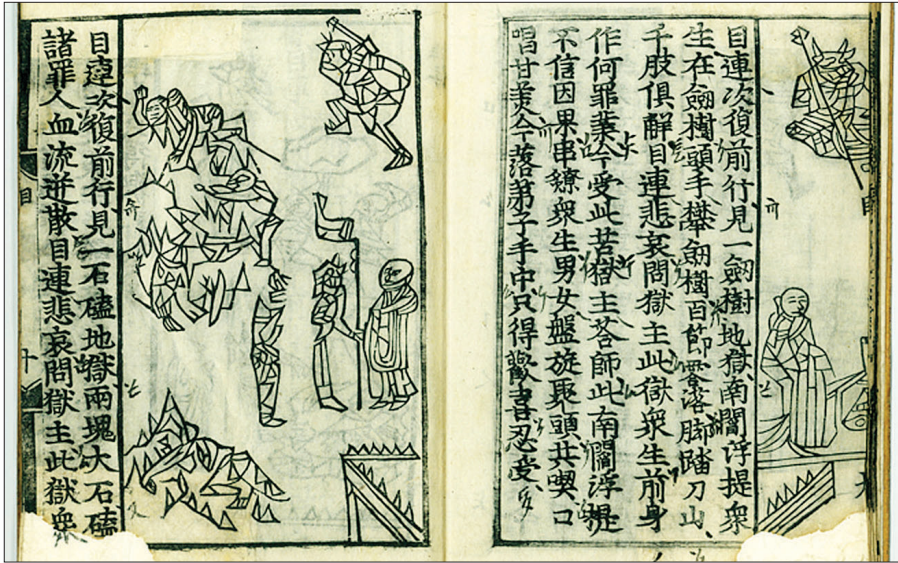 目
九
目連次復前行見一劒樹地獄南閻浮提衆
生在劒樹頭手攀劒樹百節零落脚踏刀山
千肢俱解目連悲哀問獄主此獄衆生前身
作何罪業今受此苦獄主答師此南閻浮提
不信因果串衆生男女盤旋聚頭共喫口
唱甘美今落弟子手中只得歡喜忍受
目連次復前行見一石磕地獄兩塊大石磕
諸罪人血流迸散目連悲哀問獄主此獄衆
目
十